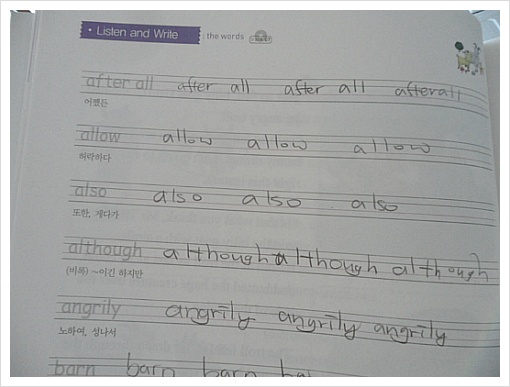 • Listen and Write the words
after all after all after all after all
어쨌든
allow allow allow allow
허락하다
also also also also
또한, 게다가
although although although although
(비록) ~이긴 하지만
angrily angrily angrily angrily
노하여, 성나서
barn barn barn